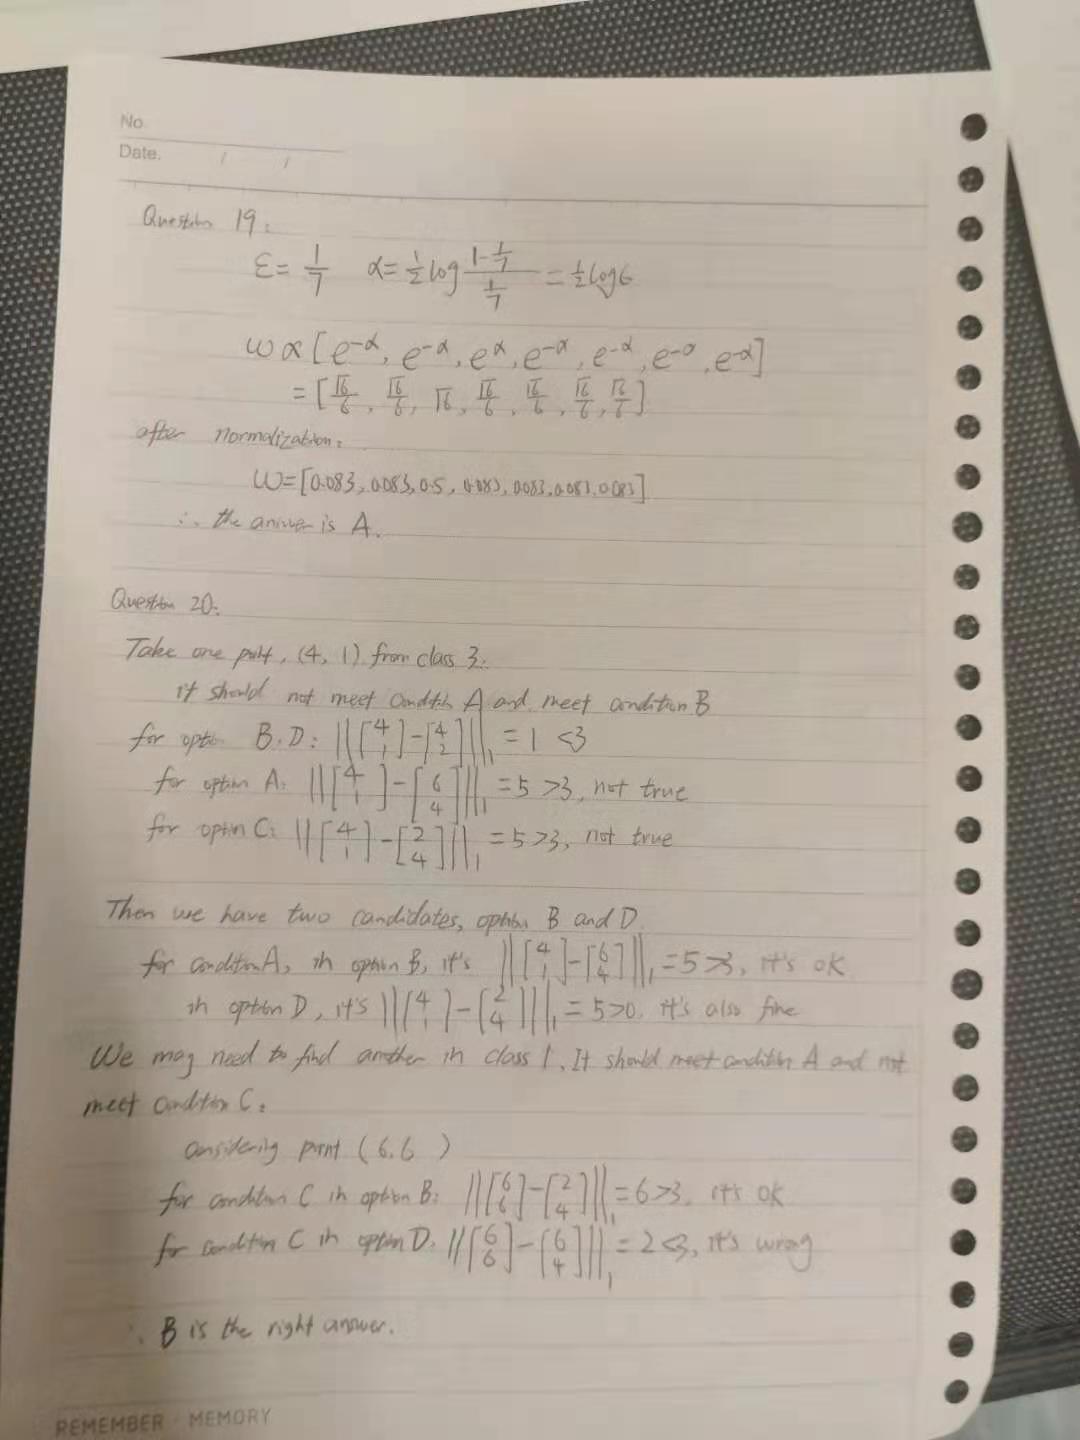 No.
Date. / /
Question 19:
ε = 1/7 α = 1/2 log (1-1/7)/(1/7) = 1/2 log6
ω ∝ [e^-α, e^-α, e^α, e^-α, e^-α, e^-α, e^-α]
= [√6/6, √6/6, √6, √6/6, √6/6, √6/6, √6/6]
after normalization:
ω=[0.083, 0.083, 0.5, 0.083, 0.083, 0.083, 0.083]
∴ the answer is A.
Question 20:
Take one point, (4, 1) from class 3.
it should not meet condition A and meet condition B
for option B.D: ||[4 1]-[4 2]||₁ = 1 <3
for option A: ||[4 1]-[6 4]||₁ = 5 >3, not true
for option C: ||[4 1]-[2 4]||₁ = 5 >3, not true
Then we have two candidates, option B and D.
for condition A, in option B, it's ||[4 1]-[6 4]||₁ = 5 >3, it's ok
in option D, it's ||[4 1]-[2 4]||₁ = 5 >0. it's also fine
We may need to find another in class 1. It should meet condition A and not
meet condition C:
considering point (6.6 )
for condition C in option B: ||[6 6]-[2 4]||₁ = 6 >3. it's ok
for condition C in option D. ||[6 6]-[6 4]||₁ = 2 <3, it's wrong
∴ B is the right answer.
REMEMBER · MEMORY